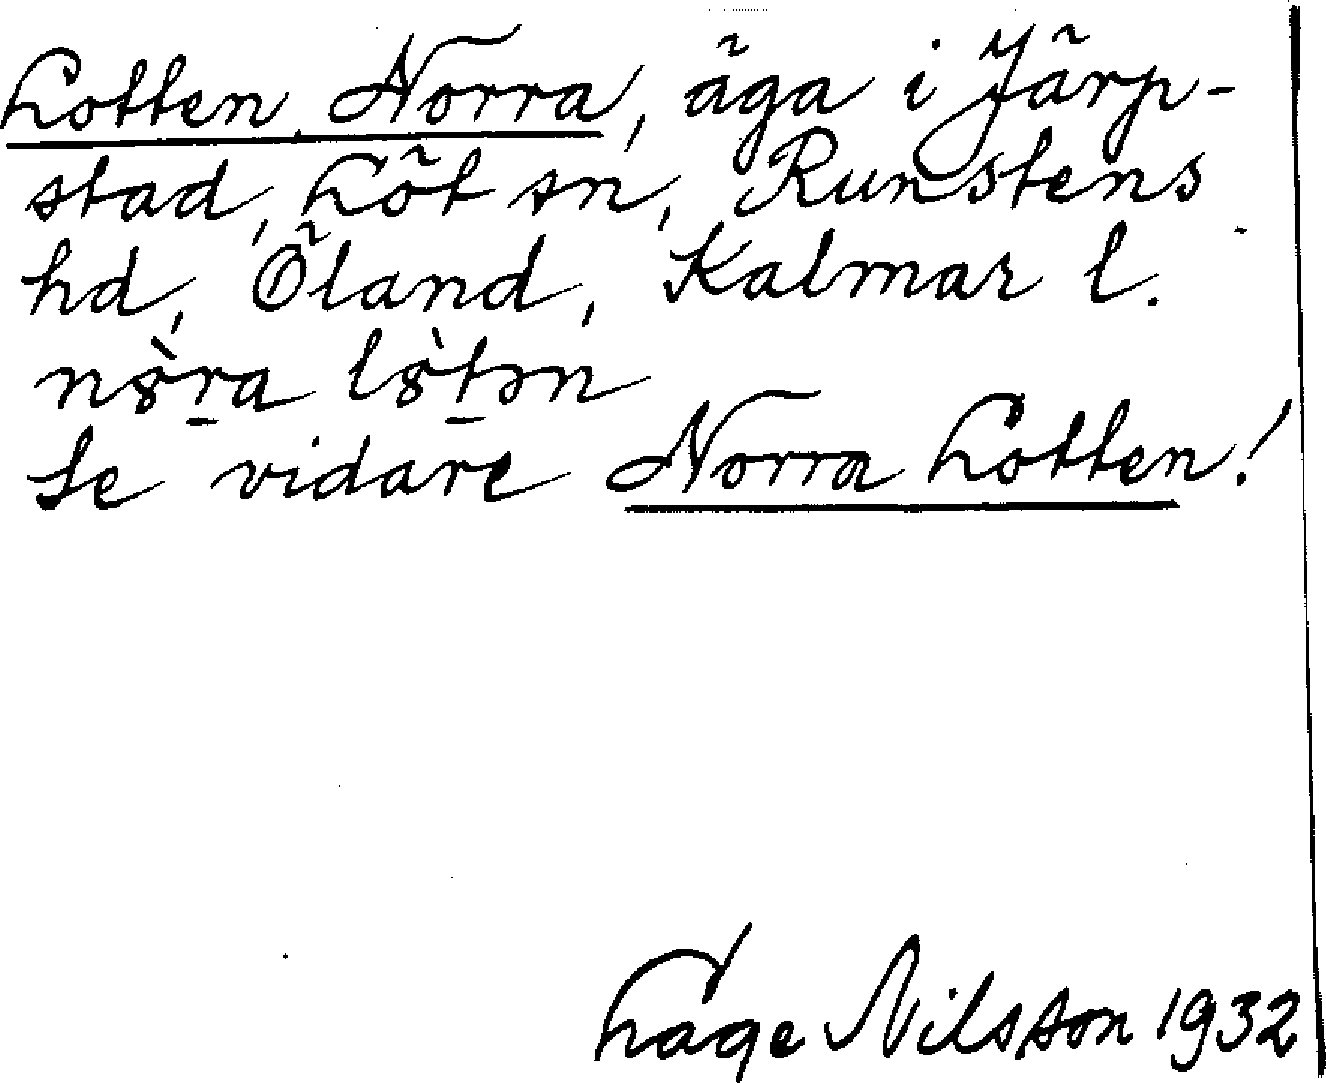 Lotten, Norra, äga i Järp-
stad, Löt sn, Runstens
hd, Öland, Kalmar l.
nò̈ra lò̈tən
Se vidare Norra Lotten!
Lage Nilsson 1932